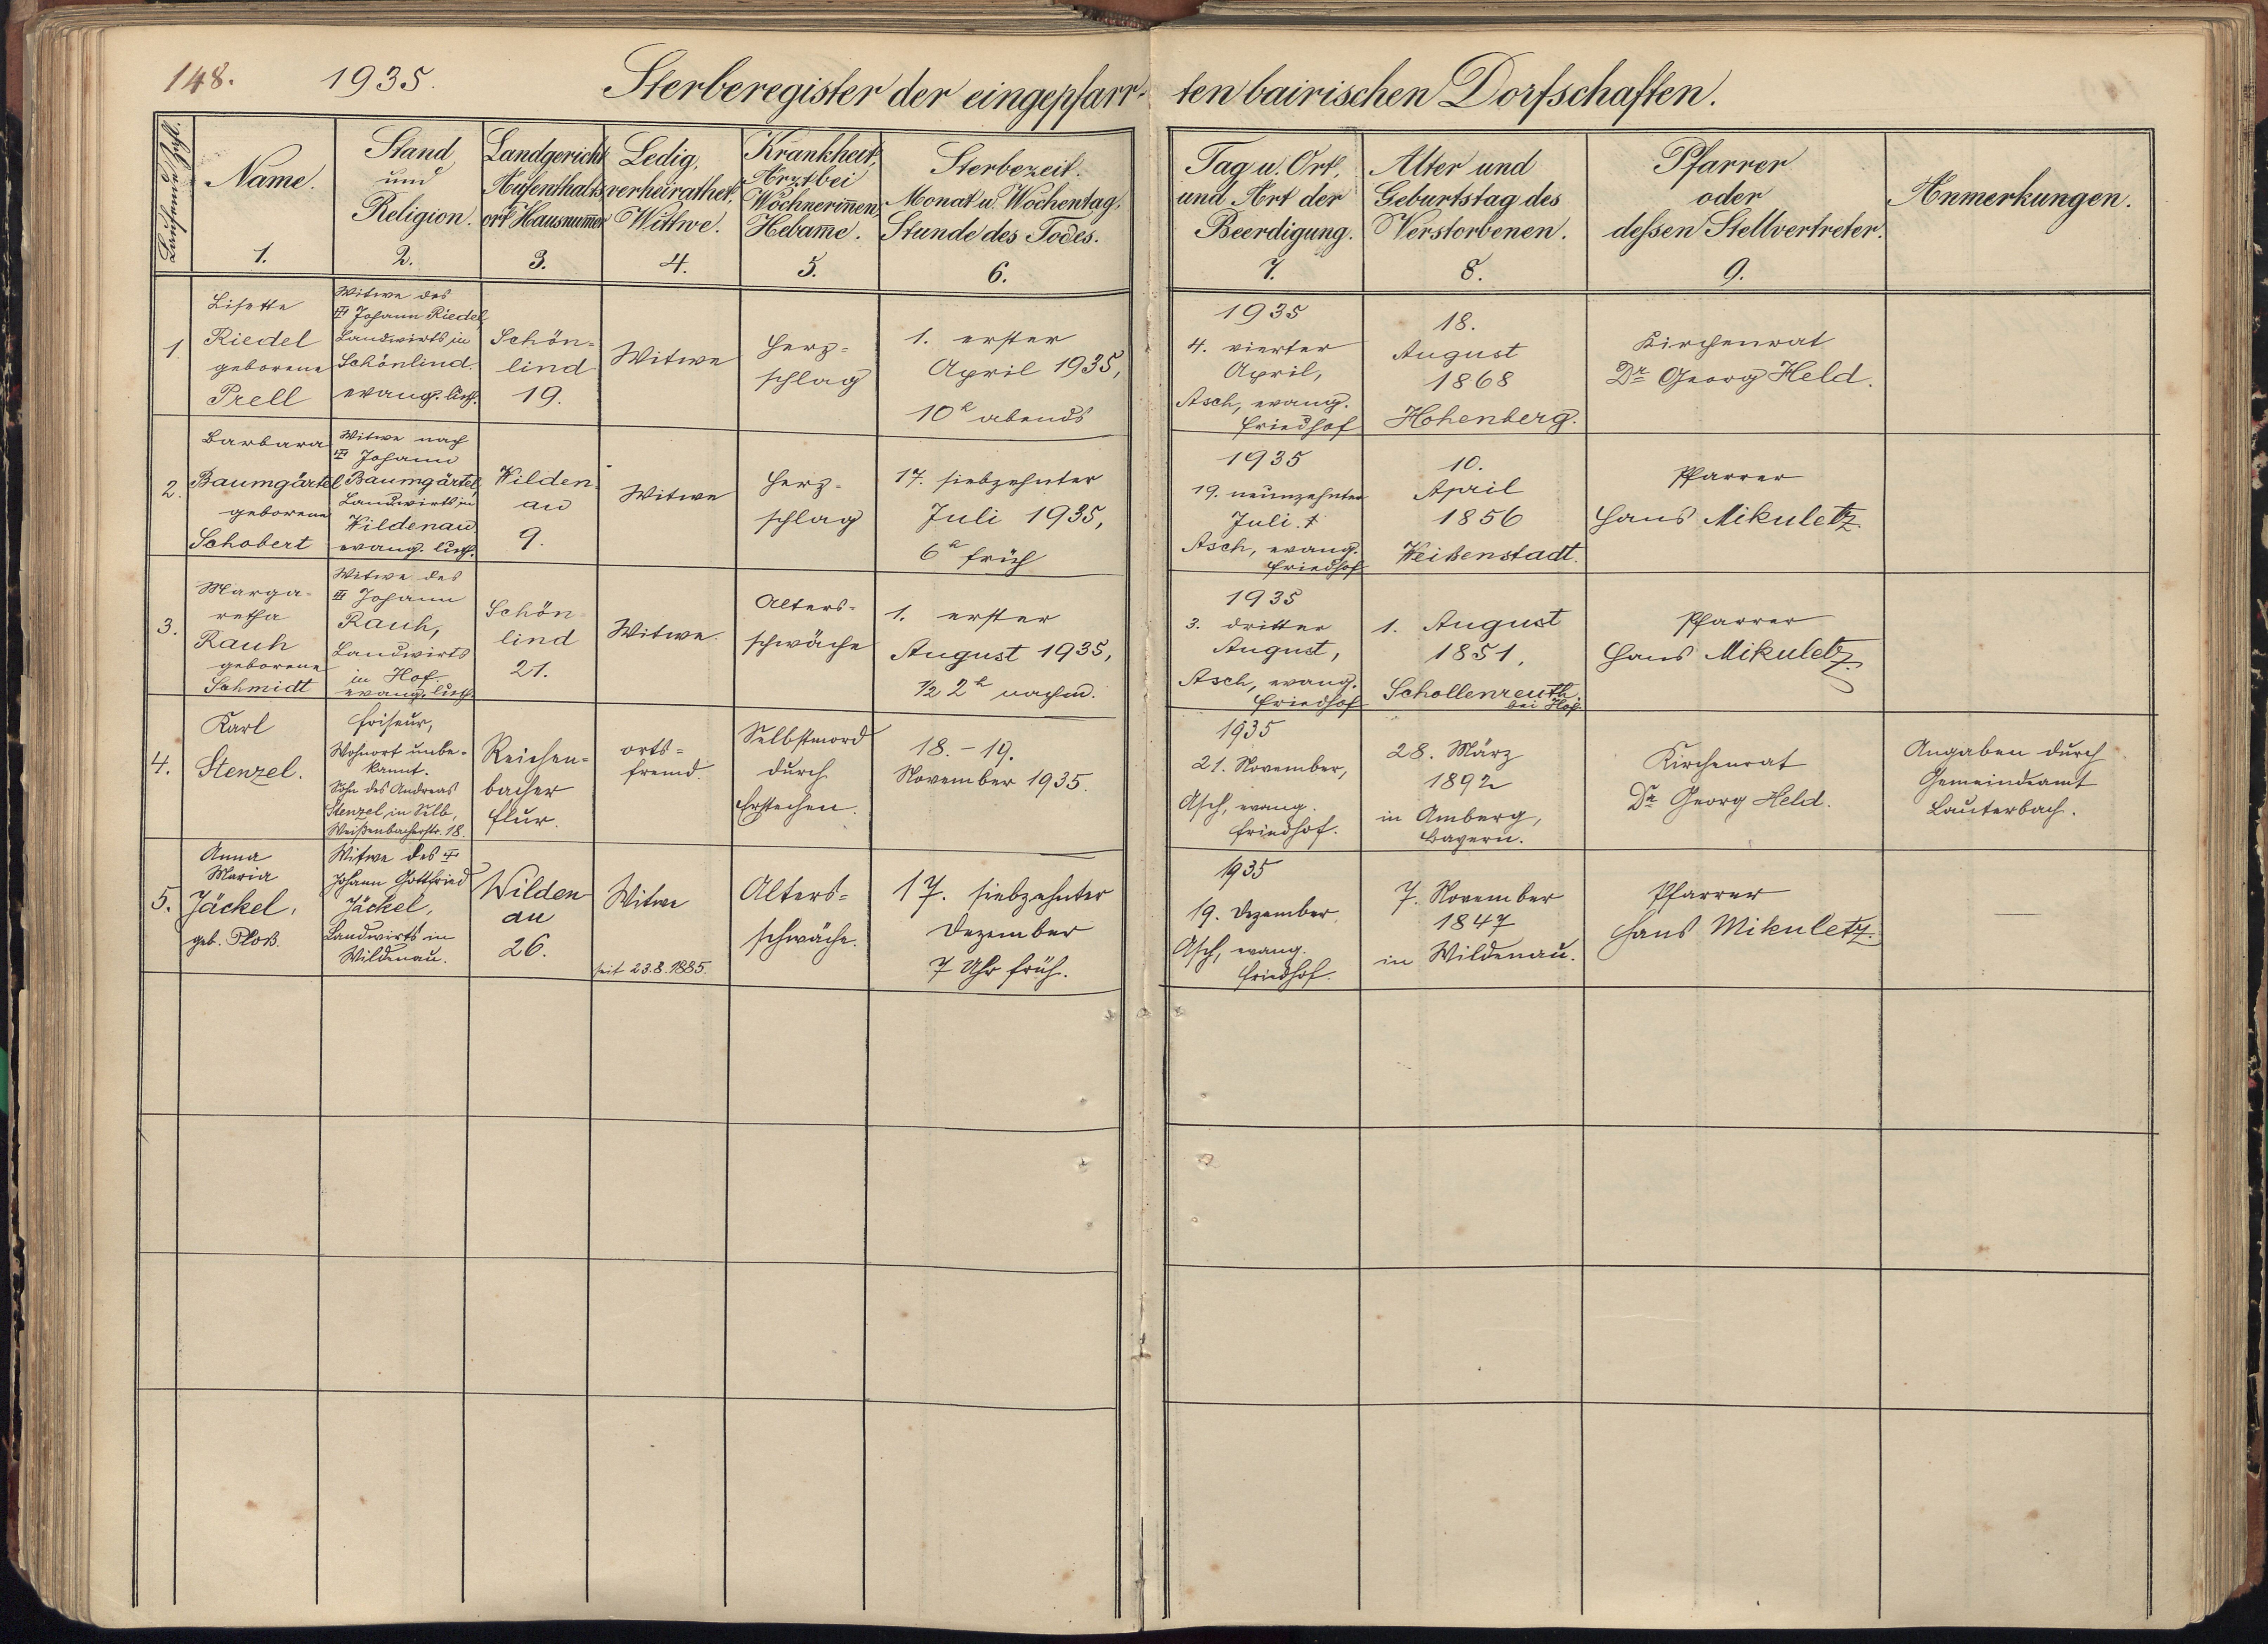 148. 1935. Sterberegister der eingepfarr- ten bairischen Dorfschaften.
Laufende Zahl.
Name.
1.
Stand
und
Religion.
2.
Landgericht
Aufenthalts-
ort Hausnummer
3.
Ledig,
verheirathet,
Wittwe.
4.
Krankheit,
Arzt bei
Wöchnerinnen
Hebame.
5.
Sterbezeit.
Monat u. Wochentag,
Stunde des Todes.
6.
Tag u. Ort,
und Art der
Beerdigung.
7.
Alter und
Geburtstag des
Verstorbenen.
8.
Pfarrer
oder
deßen Stellvertreter.
9.
Anmerkungen.
1.
Lisette
Riedel
geborene
Prell
Witwe des
Johann Riedel,
Landwirts in
Schönlind.
evang. luth.
Schön-
lind
19.
Witwe
Herz-
schlag
1. erster
April 1935,
10h abends
1935
4. vierter
April,
Asch, evang.
Friedhof
18.
August
1868
Hohenberg.
Kirchenrat
Dr Georg Held.
2.
Barbara
Baumgärtel
geborene
Schobert
Witwe nach
Johann
Baumgärtel,
Landwirts in
Wildenau
evang. luth.
Wilden-
au
9.
Witwe
Herz-
schlag
17. siebzehnter
Juli 1935,
6h früh
1935
19. neunzehnter
Juli.
Asch, evang.
Friedhof
10.
April
1856
Weißenstadt.
Pfarrer
Hans Mikuletz
3.
Marga-
retha
Rauh
geborene
Schmidt
Witwe des
Johann
Rauh,
Landwirts
in Hof.
evang. luth
Schön-
lind
21.
Witwe.
Alters-
schwäche
1. erster
August 1935,
½ 2h nachm.
1935
3. dritter
August,
Asch, evang.
Friedhof
1. August
1851,
Schollenreuth
bei Hof.
Pfarrer
Hans Mikuletz
4.
Karl
Stenzel.
Friseur,
Wohnort unbe-
kannt.
Sohn des Andreas
Stenzel, in Selb,
Weißenbacherstr. 18.
Reichen-
bacher
Flur.
orts-
fremd.
Selbstmord
durch
Erstechen.
18. - 19.
November 1935.
1935
21. November,
Asch, evang.
Friedhof.
28. März
1892
in Amberg,
Bayern.
Kirchenrat
Dr Georg Held.
Angaben durch
Gemeindeamt
Lauterbach.
5.
Anna
Maria
Jäckel,
geb. Ploß.
Witwe des
Johann Gottfried
Jäckel,
Landwirts in
Wildenau.
Wilden-
au
26.
Witwe
seit 23.8.1885.
Alters-
schwäche.
17. siebzehnter
Dezember
7 Uhr früh.
1935
19. Dezember,
Asch, evang.
Friedhof.
7. November
1847
in Wildenau.
Pfarrer
Hans Mikuletz.